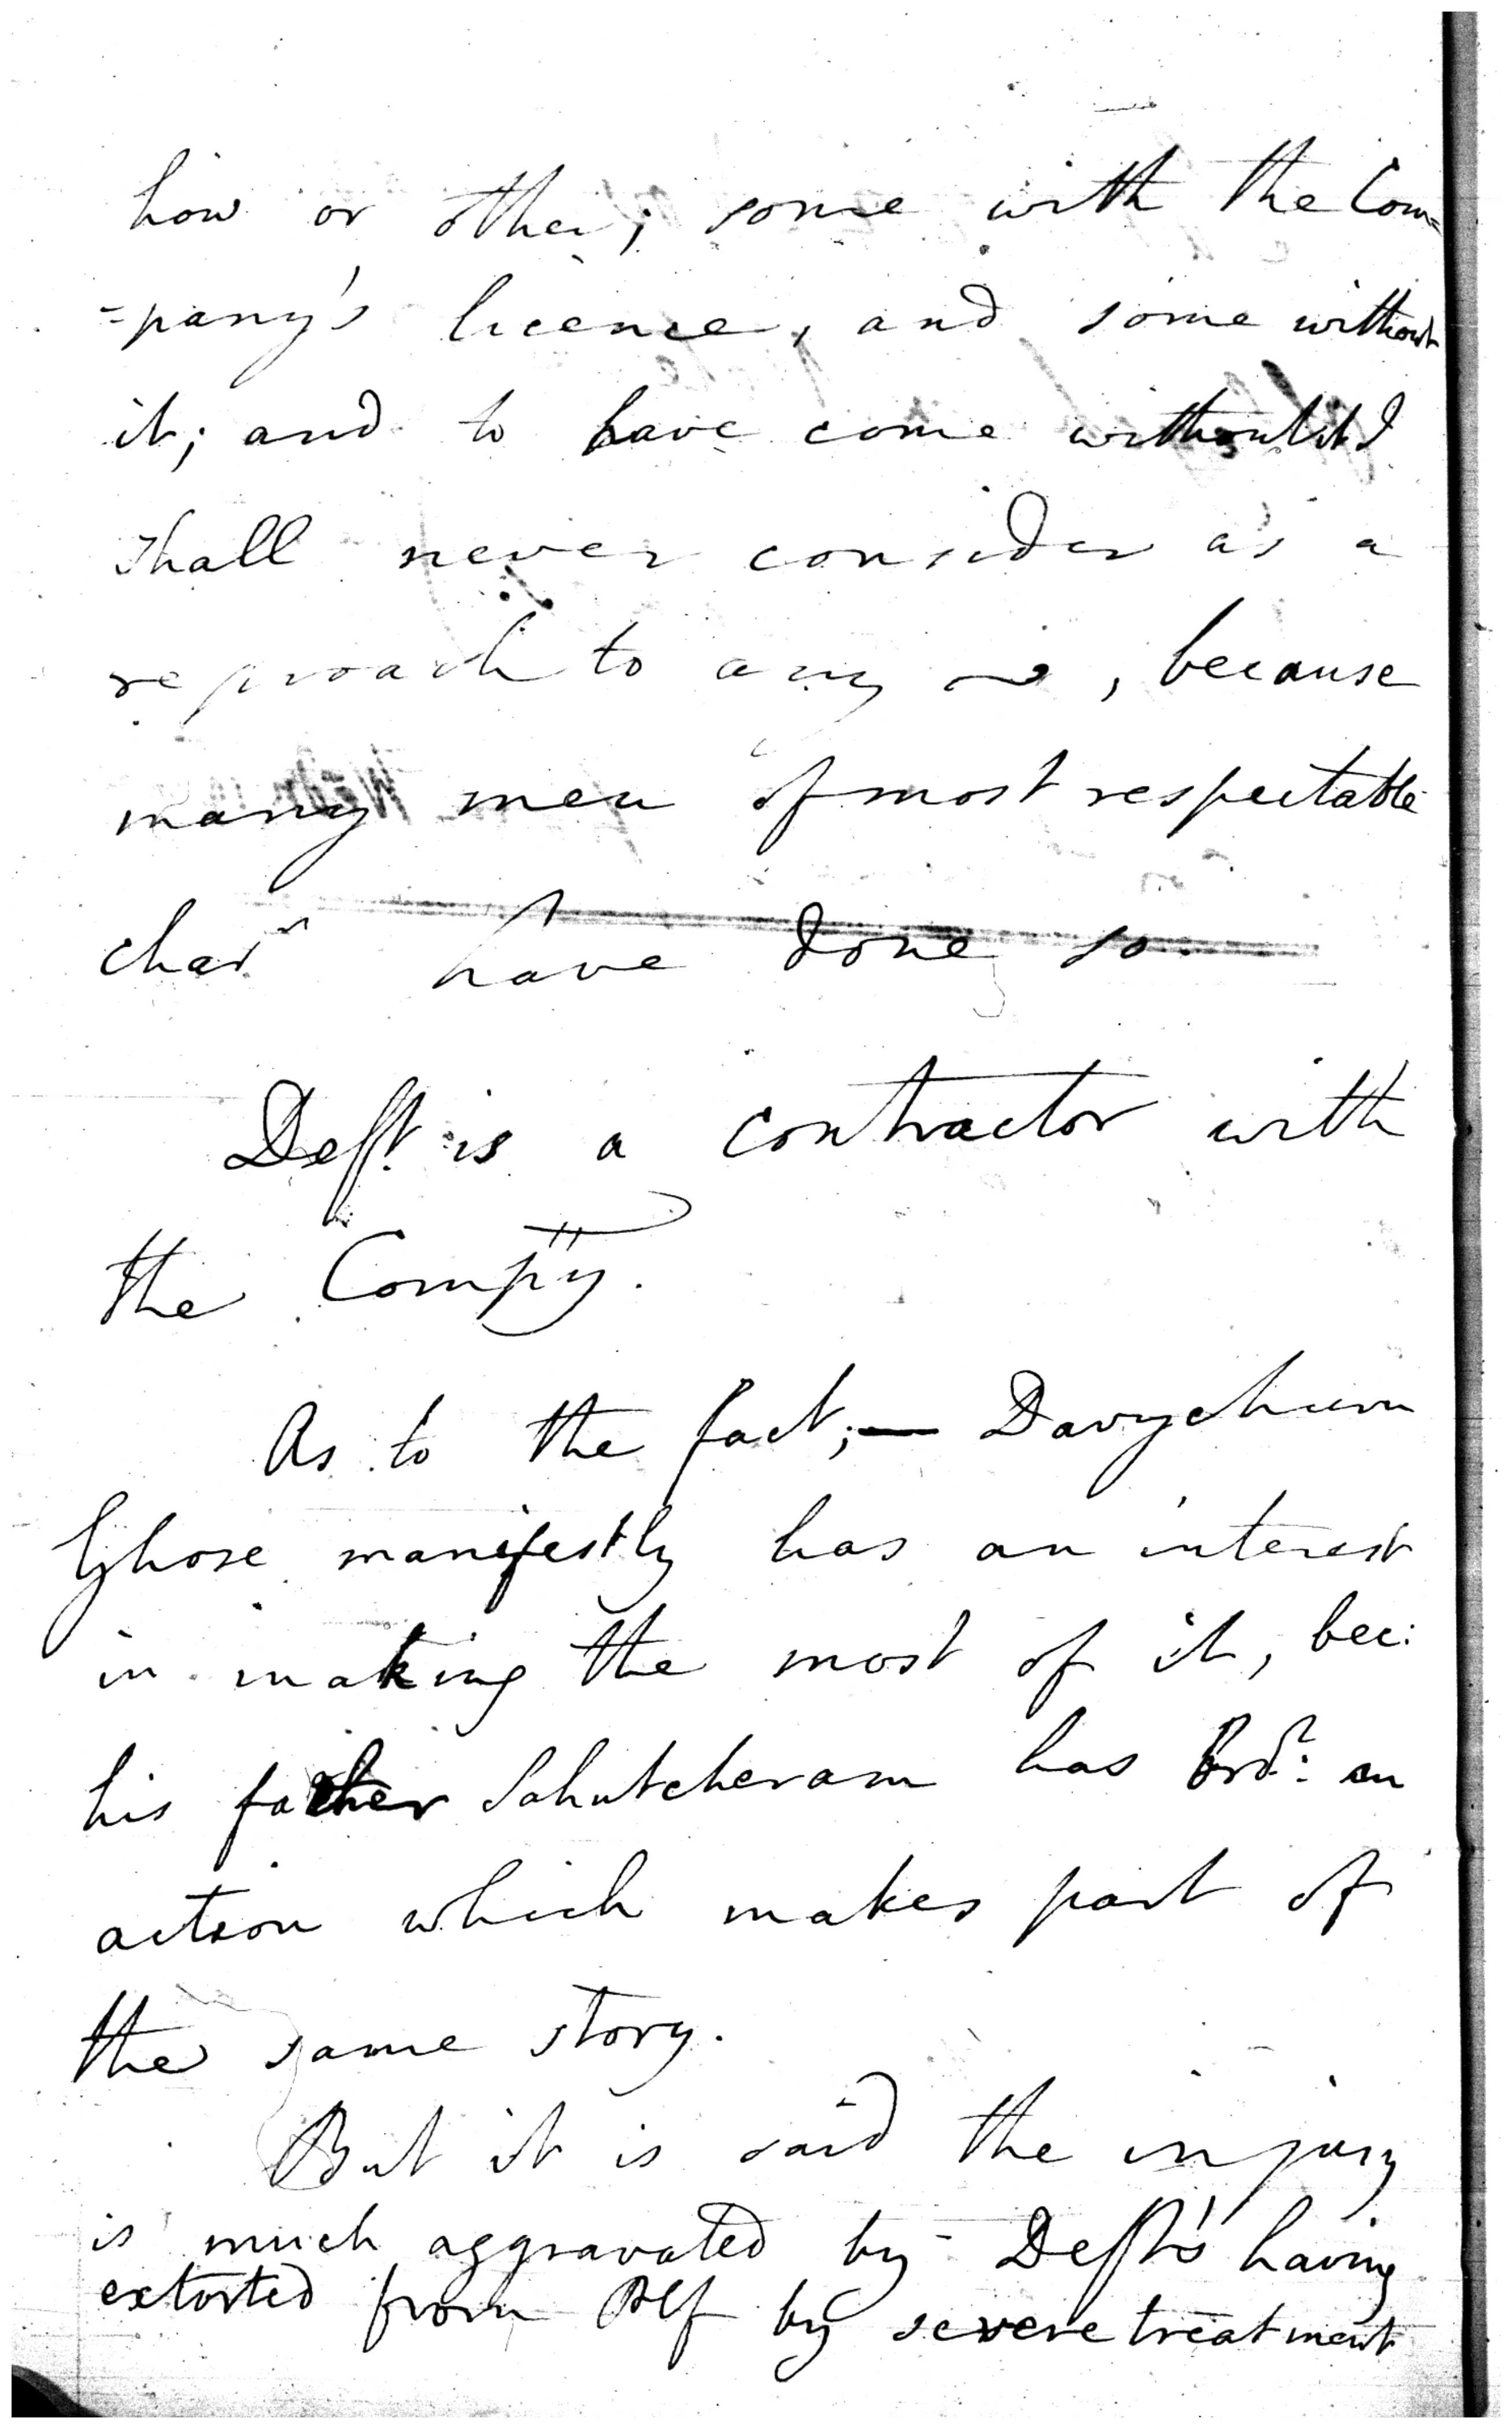 how or other; some with the Com=
=pany's licence, and some without
it; and to have come without it I
shall never consider as a
reproach to any , because
many men of most respectable
char^r have done so.
Deft. is a contractor with
the Compy.
As to the fact;— Davychurn
Ghose manifestly has an interest
in making the most of it, bec:
his father has Brot: an
action which makes part of
the same story.
But it is said the injury
is much aggravated by Deft's having
extorted from Plf by severe treatment